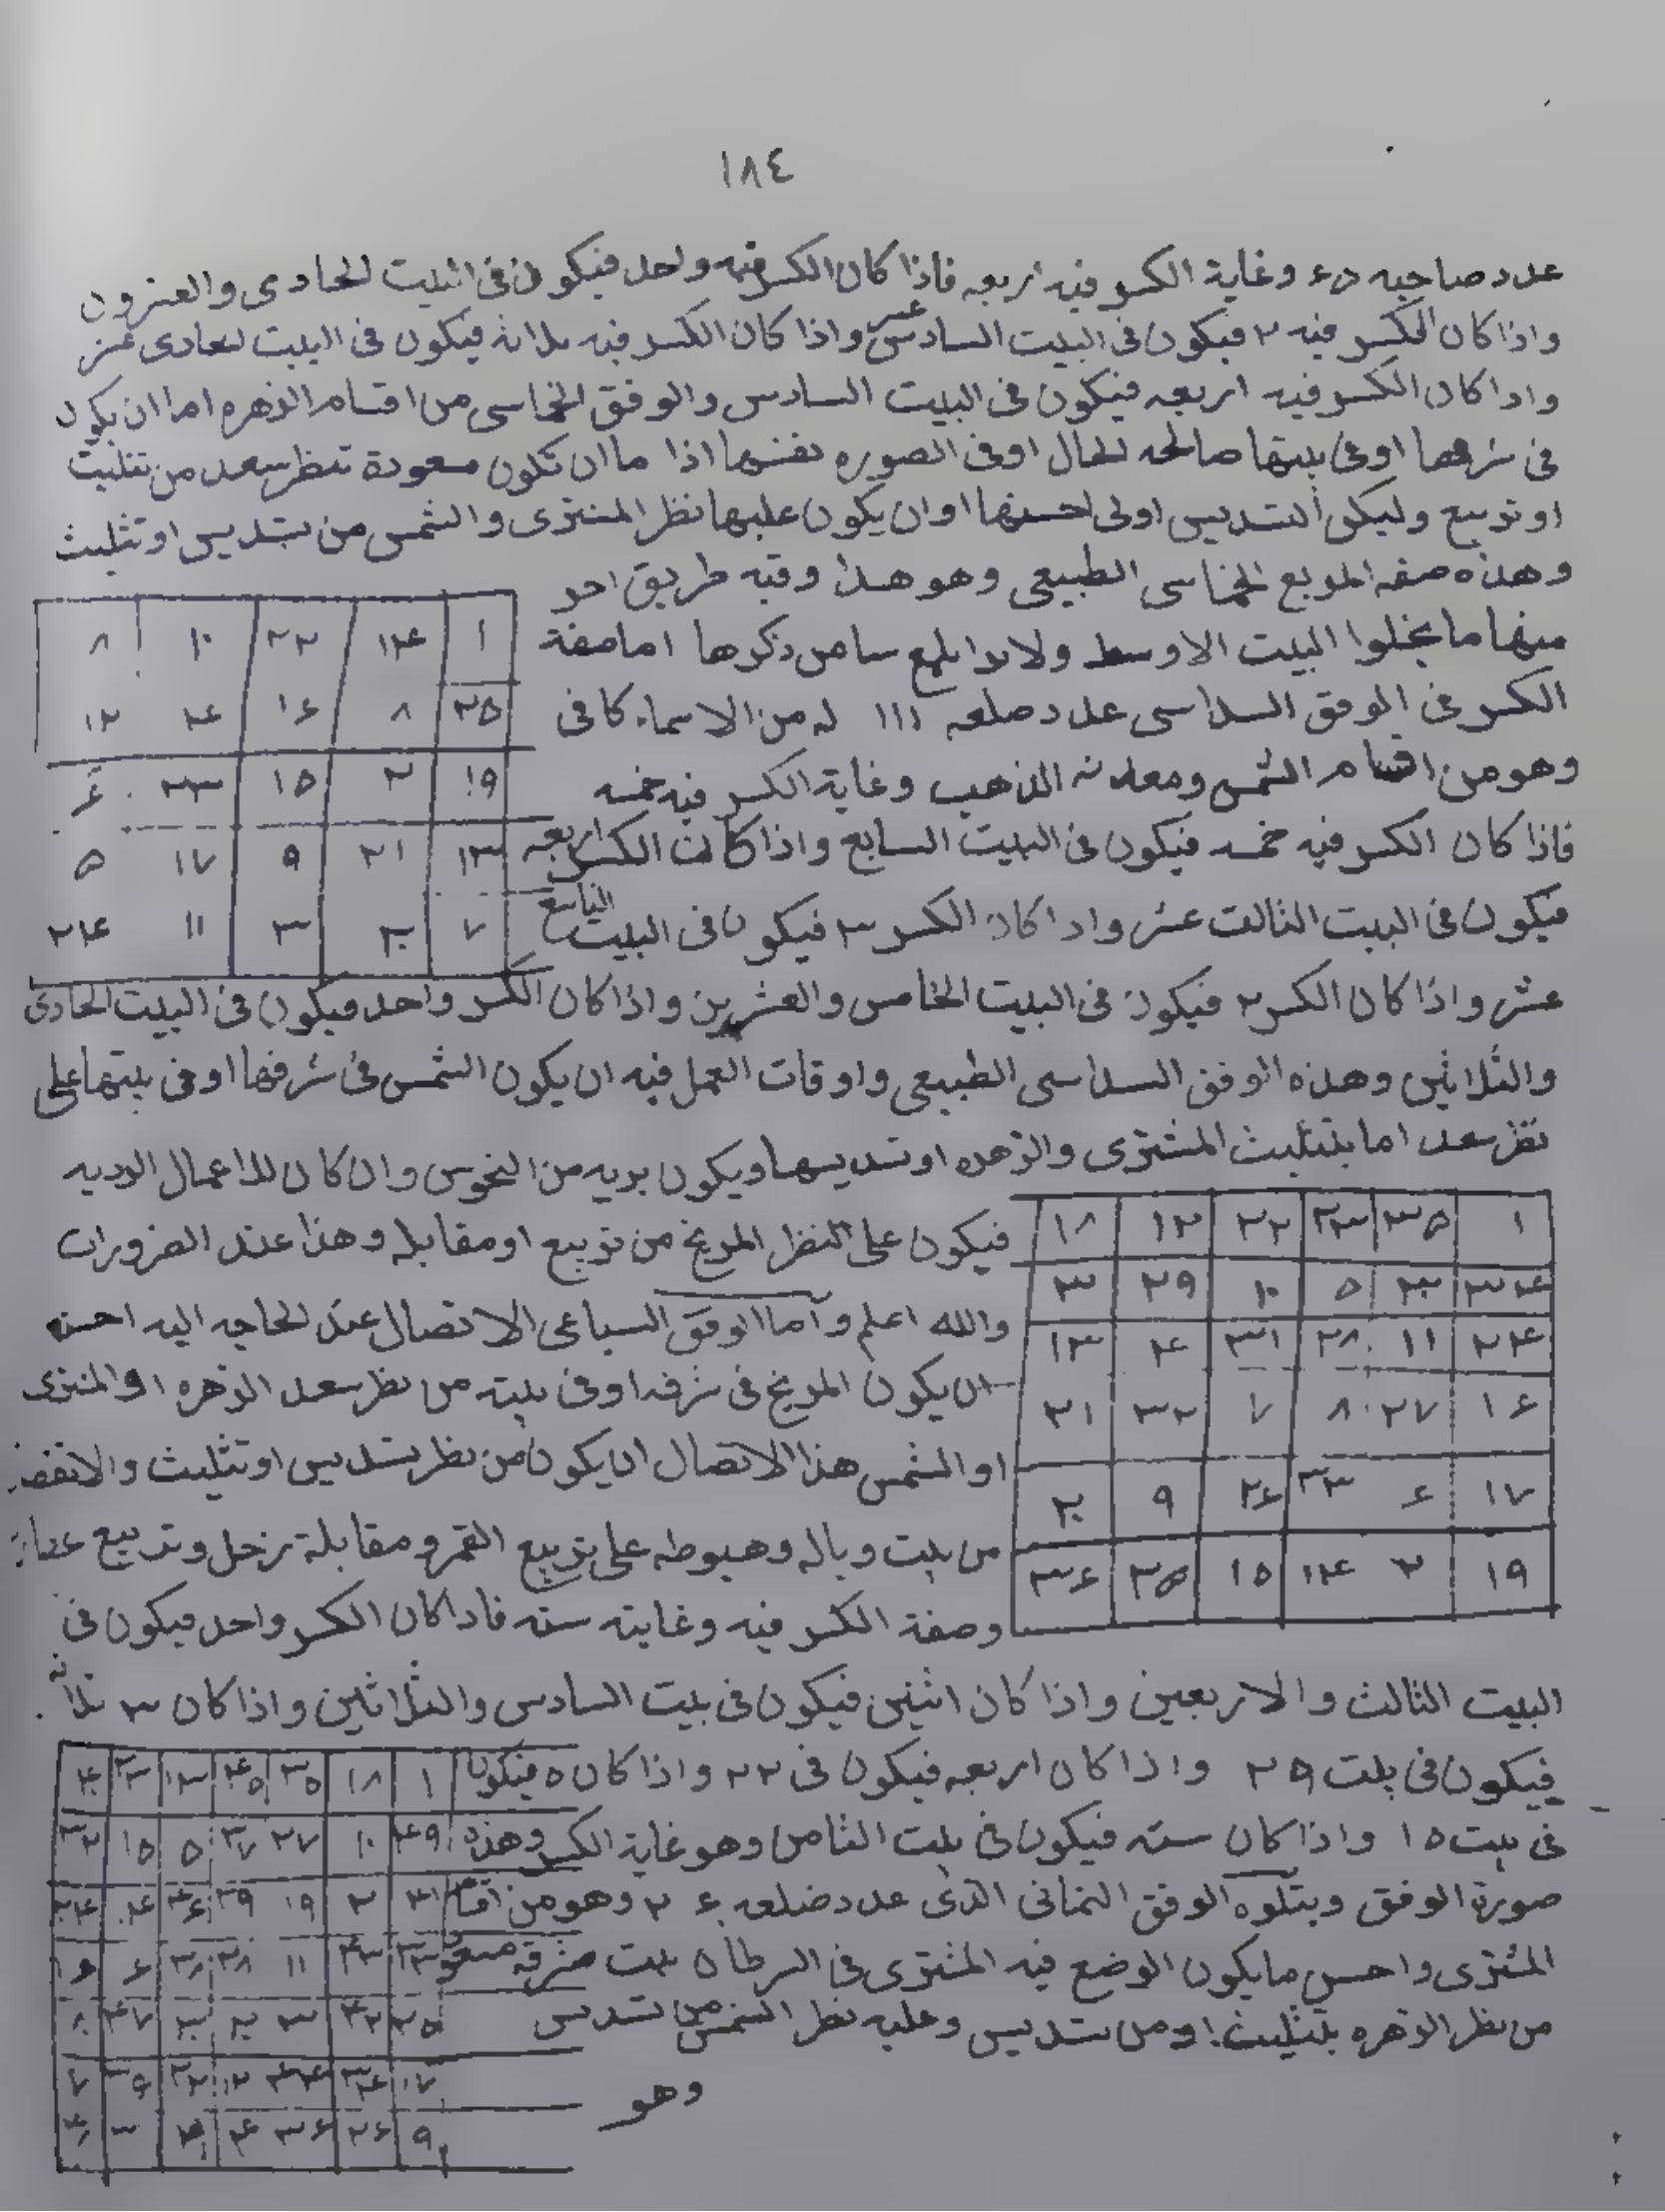 ١٨٤
عدد صاحبه ٤٥ وغاية الكسر فيه اربعه فاذا كان الكسر فيه واحد فيكون فى البيت الحادى والعشرون
واذا كان الكسر فيه ٢ فيكون فى البيت السادس عشر واذا كان الكسر فيه ثلاثة فيكون فى البيت الحادى عشر
واذا كان الكسر فيه اربعه فيكون فى البيت السادس والوفق الخماسى من اقسام الزهره اما ان يكون
فى شرفها او فى بيتها صالحه الحال او فى الصوره نفسها اذا ما ان تكون مسعودة تنظر سعد من تثليث
او تربيع وليكن التسديس اولى احسنها او ان يكون عليها نظر المشترى والشمس من تسديس او تثليث
وهذه صفه المربع الخماسى الطبيعى وهو هذا وفيه طريق اخر
منها ما يخلوا البيت الاوسط ولا من ذكرها اما صفة
الكسر فى الوفق السداسى عدد ضلعه ١١١ له من الاسماء كافى
وهو من اقسام الشمس ومعدنه الذهب وغاية الكسر فيه خمسه
فاذا كان الكسر فيه خمسه فيكون فى البيت السابع واذا كان الكسر اربعه
فيكون فى البيت الثالث عشر واذا كان الكسر ٣ فيكون فى البيت التاسع
عشر واذا كان الكسر ٢ فيكون فى البيت الخامس والعشرين واذا كان الكسر واحد فيكون فى البيت الحادى
والثلاثين وهذه الوفق السداسى الطبيعى واوقات العمل فيه ان يكون الشمس فى شرفها او فى بيتها على
نظر سعد اما بتثليث المشترى والزهره او تسديسها ويكون بريه من النحوس وان كان للاعمال الرديه
فيكون على النظر المريخ من تربيع او مقابله وهذا عند الضرورات
والله اعلم واما الوفق السباعى الاتصال عند الحاجه اليه احسنه
ان يكون المريخ فى شرفه او فى بيته من نظر سعد الزهره او المشترى
او الشمس هذا الاتصال ان يكون من نظر تسديس او تثليث والانفصا
من بيت وباله وهبوطه على تربيع القمر ومقابلة زحل وتربيع عطارد
وصفة الكسر فيه وغايته سته فاذا كان الكسر واحد فيكون فى
البيت الثالث والاربعين واذا كان اثنين فيكون فى بيت السادس والثلاثين واذا كان ٣ ثلاثه
فيكون فى بيت ٢٩ واذا كان اربعه فيكون فى ٢٢ واذا كان ٥ فيكون
فى بيت ١٥ واذا كان سته فيكون فى بيت الثامن وهو غاية الكسر وهذه
صورة الوفق ويتلوه الوفق الثمانى الذى عدد ضلعه ٢٦٠ وهو من اقسام
المشترى واحسن ما يكون الوضع فيه المشترى فى السرطان بيت شرفه مسعود
من نظر الزهره بتثليث او من تسديس وعليه نظر الشمس من تسديس
وهو
١ ١٤ ٢٢ ١٠ ٨
٢٥ ٨ ١٦ ٤ ١٢
١٩ ٢ ١٥ ٢٣ ٦
١٣ ٢١ ٩ ١٧ ٥
٧ ٢٠ ٣ ١١ ٢٤
١ ٣٥ ٢٣ ٢٢ ١٢ ١٨
٣٤ ٢٠ ٥ ١٠ ٢٩ ٣
٢٤ ١١ ٢٨ ٣١ ٤ ١٣
١٦ ٢٧ ٨ ٧ ٣٢ ٢١
١٧ ٦ ٣٣ ٢٦ ٩ ٢٠
١٩ ٢ ١٤ ١٥ ٢٥ ٣٦